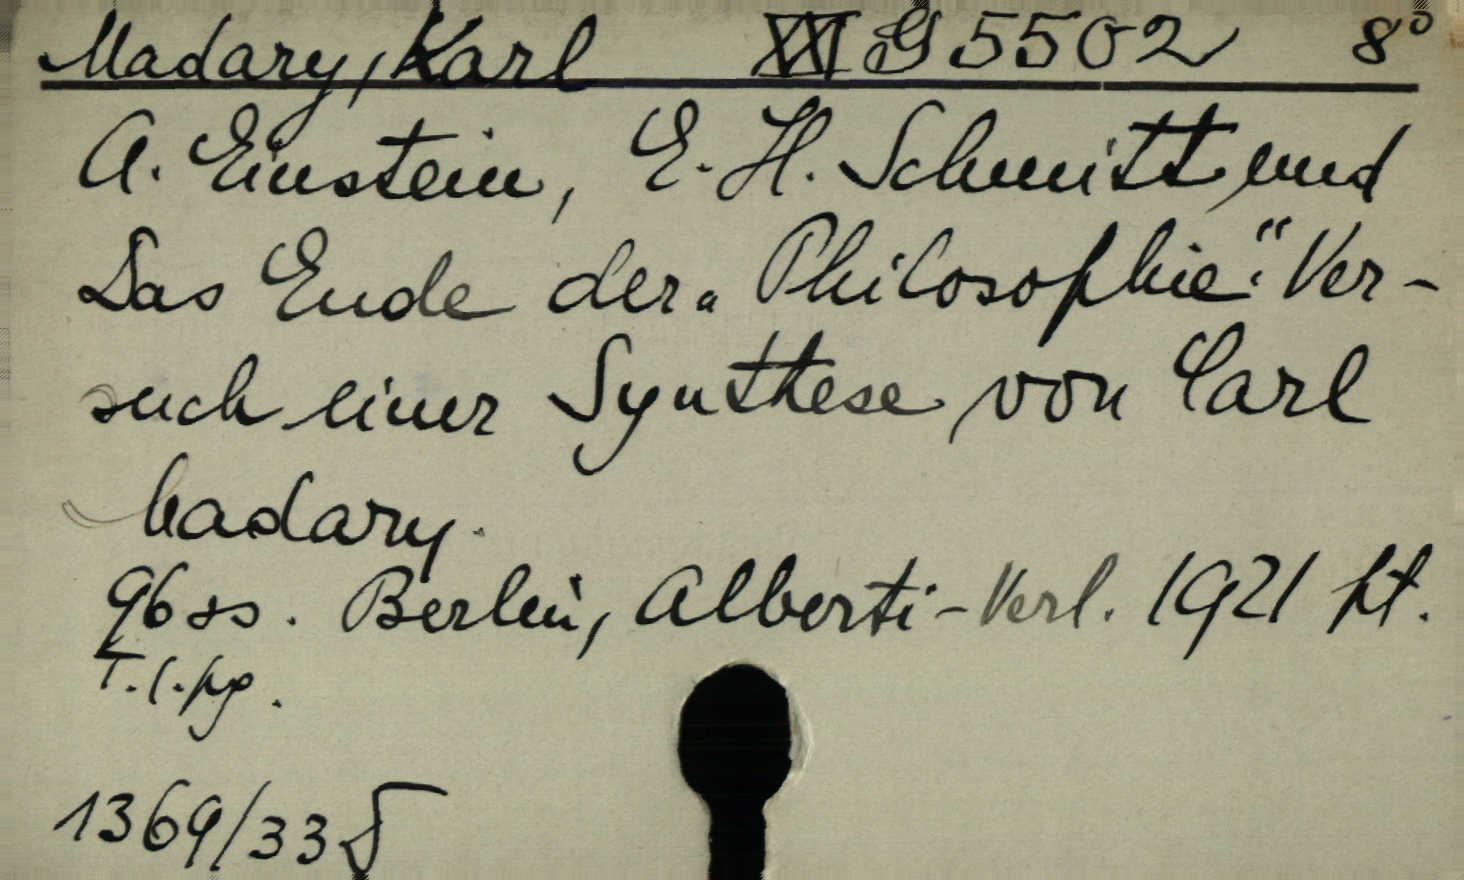 Madary, Karl XXI G 5502 8°
A. Einstein, E. H. Schmitt, und
Das Ende der „Philosophie“. Ver-
such einer Synthese, von Carl
Madary.
96 ss. Berlin, Alberti-Verl. 1921 pt.
T. l. pg.
1369/33